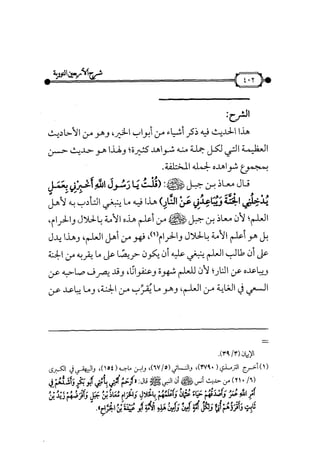 شرح الأربعين النووية
٤٠٢
الشرح:
هذا الحديث فيه ذكر أشياء من أبواب الخير، وهو من الأحاديث
العظيمة التي لكل جملة منه شواهد كثيرة؛ ولهذا هو حديث حسن
بمجموع شواهده لجمله المختلفة.
قال معاذ بن جبل رضي الله عنه: (قُلْتُ يَا رَسُولَ اللَّهِ أَخْبِرْنِي بِعَمَلٍ
يُدْخِلُنِي الجَنَّةَ وَيُبَاعِدُنِي عَنْ النَّارِ) هذا فيه ما ينبغي التأدب به لأهل
العلم؛ لأن معاذ بن جبل رضي الله عنه من أعلم هذه الأمة بالحلال والحرام،
بل هو أعلم الأمة بالحلال والحرام(١)، فهو من أهل العلم، وهذا يدل
على أن طالب العلم ينبغي عليه أن يكون حريصًا على ما يقربه من الجنة
ويباعده عن النار؛ لأن للعلم شهوة وعنفوانًا، وقد يصرف صاحبه عن
السعي في الغاية من العلم، وهو ما يُقرِّب من الجنة، وما يباعد عن
=
الإيمان (٣٩/٣).
(١) أخرج الترمذي (٣٧٩٠)، والنسائي (٦٧/٥)، وابن ماجه (١٥٤)، والبيهقي في الكبرى
(٢١٠/٦) من حديث أنس رضي الله عنه أن النبي ﷺ قال: «أَرْحَمُ أُمَّتِي بِأُمَّتِي أَبُو بَكْرٍ وَأَشَدُّهُمْ فِي
أَمْرِ اللَّهِ عُمَرُ وَأَصْدَقُهُمْ حَيَاءً عُثْمَانُ وَأَعْلَمُهُمْ بِالحَلَالِ وَالحَرَامِ مُعَاذُ بْنُ جَبَلٍ وَأَفْرَضُهُمْ زَيْدُ بْنُ
ثَابِتٍ وَأَقْرَؤُهُمْ أُبَيٌّ وَلِكُلِّ أُمَّةٍ أَمِينٌ وَأَمِينُ هَذِهِ الأُمَّةِ أَبُو عُبَيْدَةَ بْنُ الجَرَّاحِ».